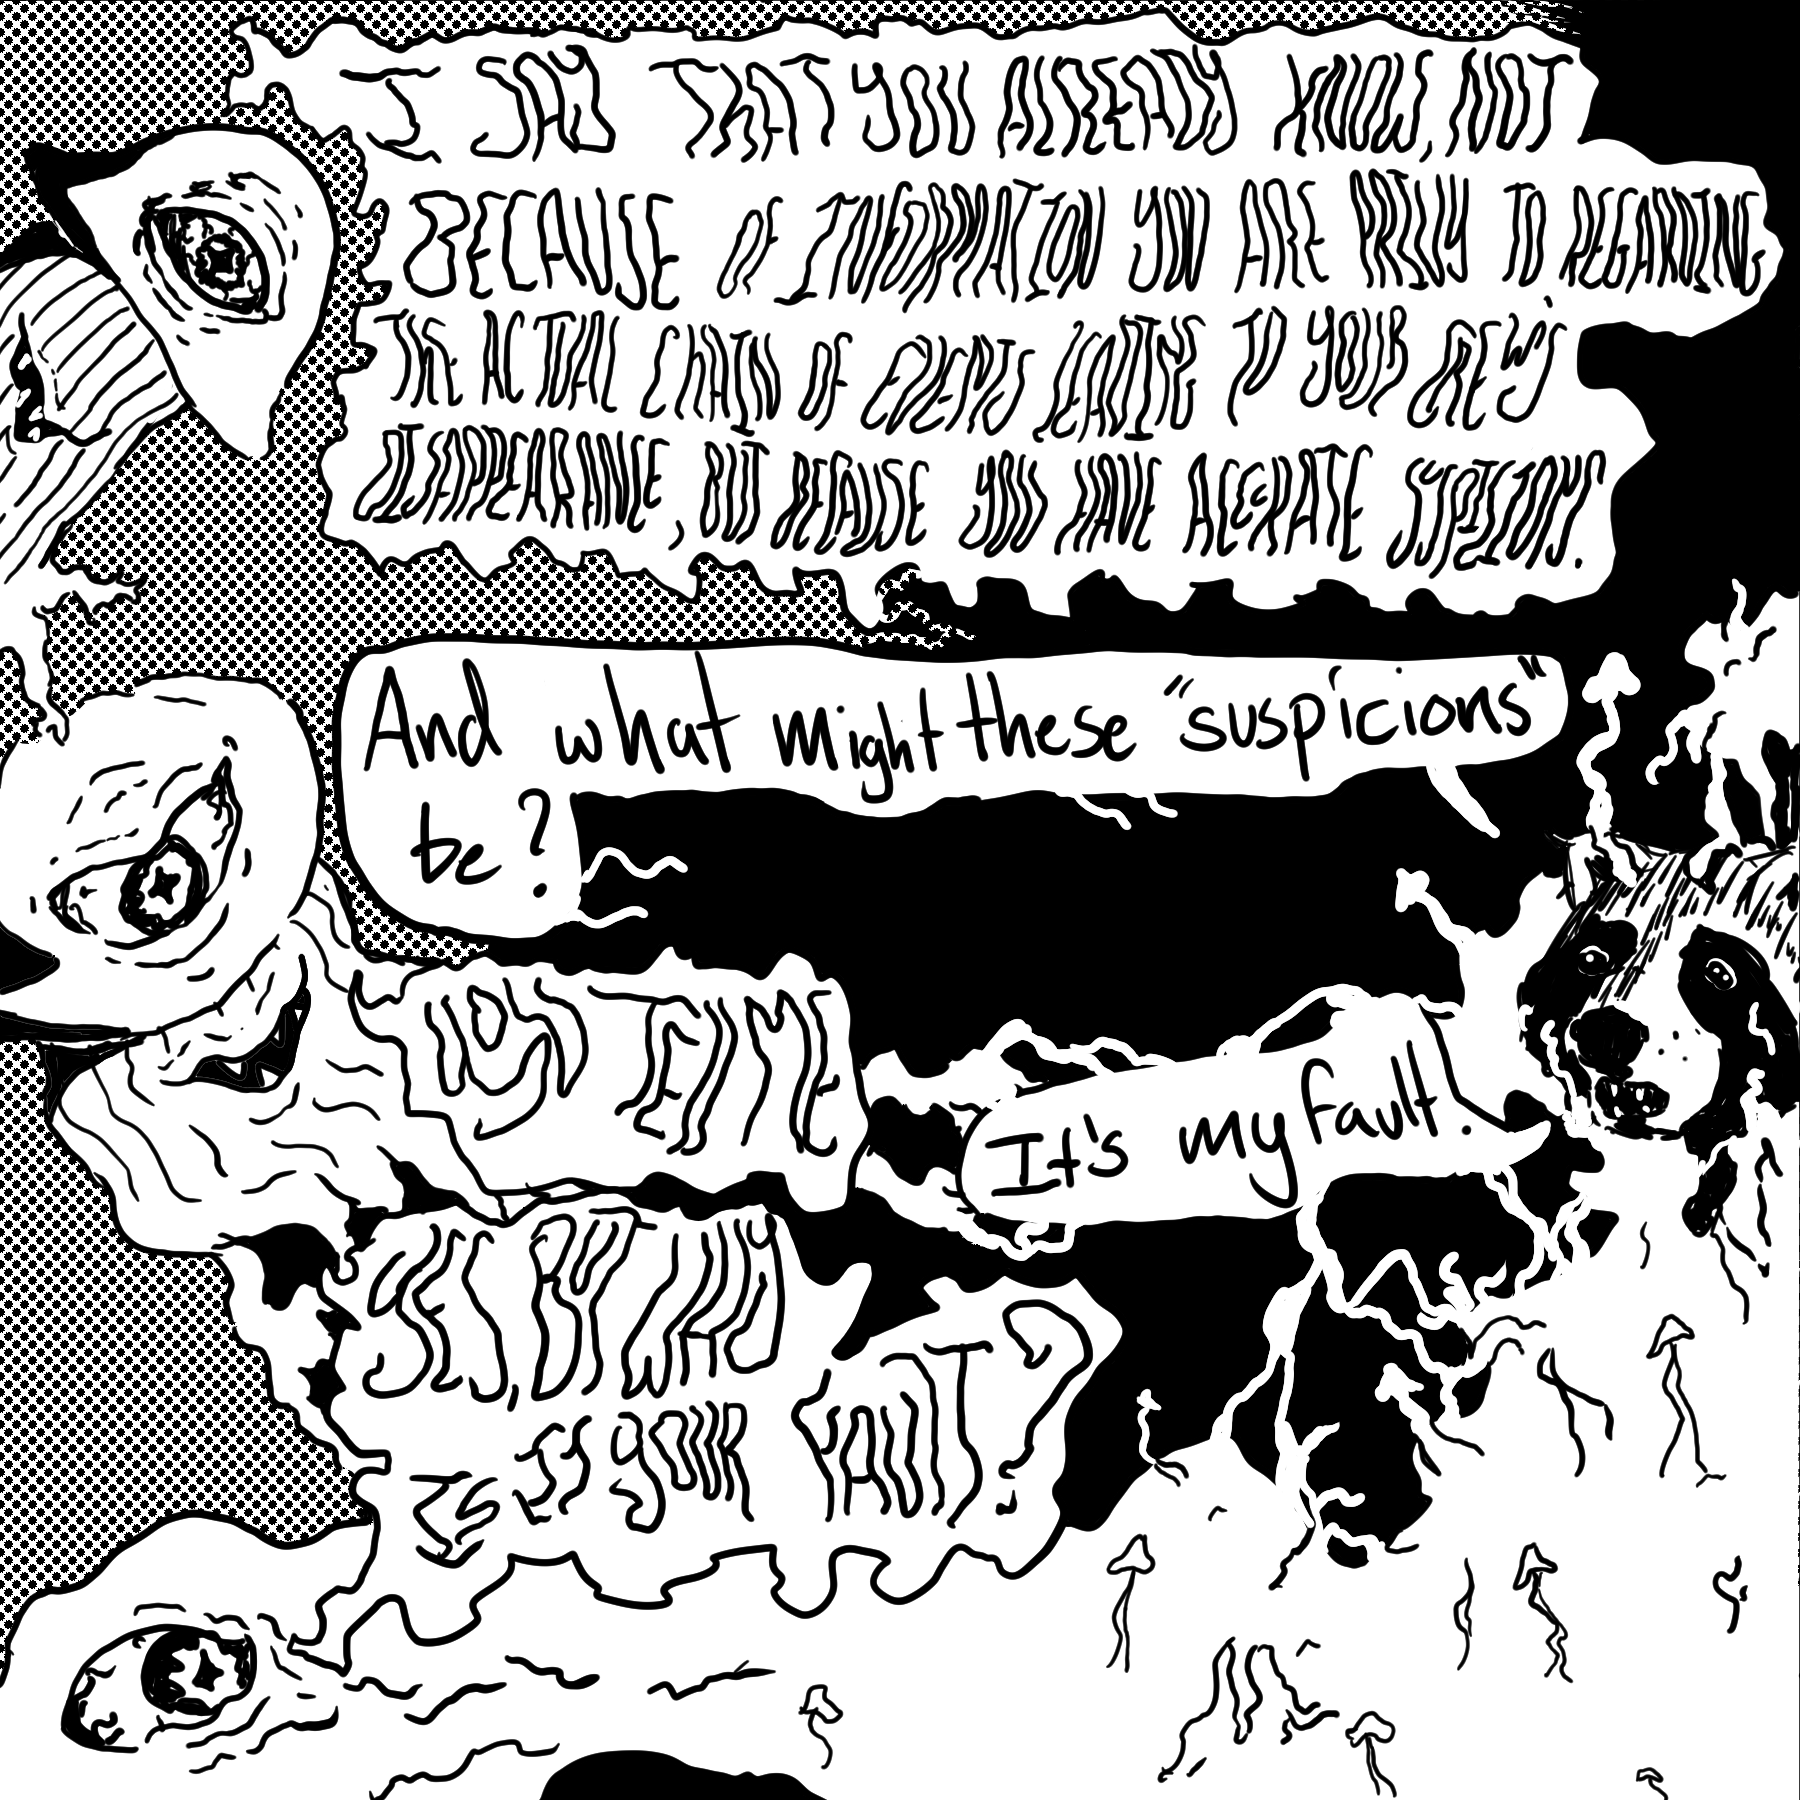 I SAY THAT YOU ALREADY KNOW, NOT
BECAUSE OF INFORMATION YOU ARE PRIVY TO REGARDING
THE ACTUAL CHAIN OF EVENTS LEADING TO YOUR CREW'S
DISAPPEARANCE, BUT BECAUSE YOU HAVE ACCURATE SUSPICIONS.
And what might these "suspicions"
be?
YOU TELL ME
It's my fault.
YES, BUT WHY
IS IS YOUR FAULT?